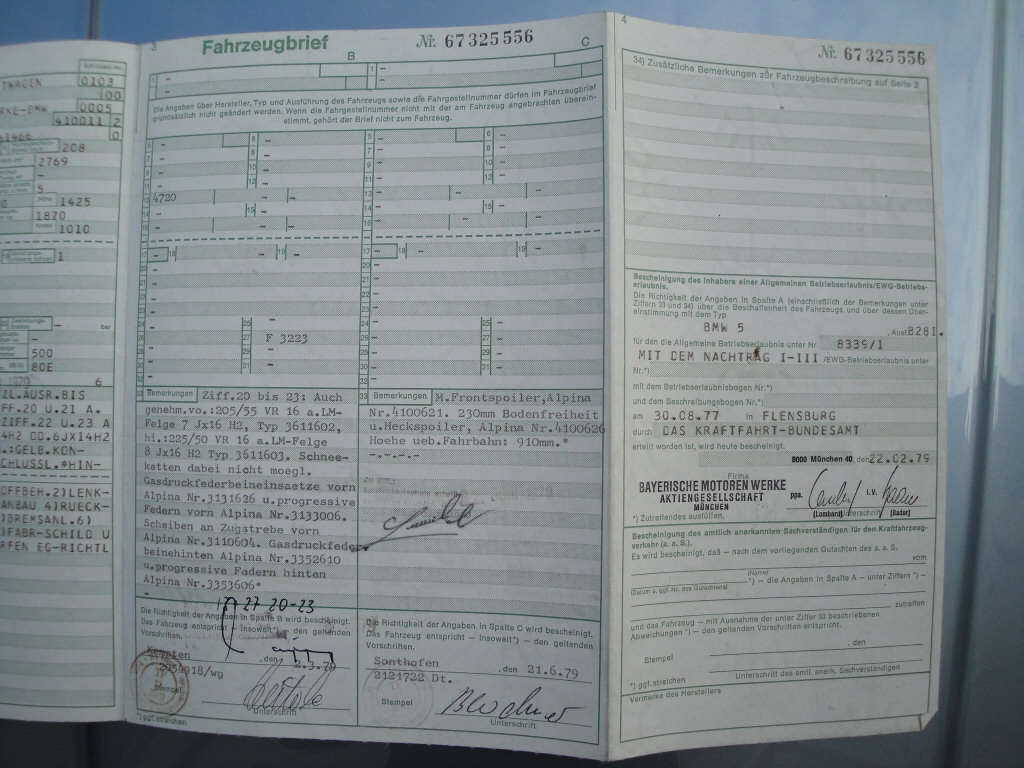 Schlüssel-Nr.
TWAGEN 0103
00
RKE-BMW 0005
410011 2
0
208
2769
5
1425
1870
1010
1
bar
500
80E
6
ZL.AUSR.BIS
FF.20 U.21 A.
ZIFF.22 U.23 A
4H2 OD.6JX14H2
.:GELB.KON-
CHLUSSL.*HIN-
OFFBEH.2)LENK-
ANBAU 4)RUECK-
)BREMSANL.6)
)FABR-SCHILD U
RFEN EG-RICHTL
3 Fahrzeugbrief Nr. 67325556
B C
Die Angaben über Hersteller, Typ und Ausführung des Fahrzeugs sowie die Fahrgestellnummer dürfen im Fahrzeugbrief
grundsätzlich nicht geändert werden. Wenn die Fahrgestellnummer nicht mit der am Fahrzeug angebrachten überein-
stimmt, gehört der Brief nicht zum Fahrzeug.
4720
F 3223
33 Bemerkungen Ziff.20 bis 23: Auch
genehm.vo.:205/55 VR 16 a.LM-
Felge 7 Jx16 H2, Typ 3611602,
hi.:225/50 VR 16 a.LM-Felge
8 Jx16 H2 Typ 3611603. Schnee-
ketten dabei nicht moegl.
Gasdruckfederbeineinsaetze vorn
Alpina Nr.3131626 u.progressive
Federn vorn Alpina Nr.3133006.
Scheiben an Zugstrebe vorn
Alpina Nr.3110604. Gasdruckfeder
beinehinten Alpina Nr.3352610
u.progressive Federn hinten
Alpina Nr.3353606*
27 20-23
Die Richtigkeit der Angaben in Spalte B wird bescheinigt.
Das Fahrzeug entspricht – insoweit – den geltenden
Vorschriften.
Kempten , den 2.3.79
2051018/wg
Stempel
Unterschrift
*) ggf. streichen
33 Bemerkungen M.Frontspoiler,Alpina
Nr.4100621. 230mm Bodenfreiheit
u.Heckspoiler, Alpina Nr.4100626
Hoehe ueb.Fahrbahn: 910mm.*
-.-.-.-.-
Die Richtigkeit der Angaben in Spalte C wird bescheinigt.
Das Fahrzeug entspricht – insoweit*) – den geltenden
Vorschriften.
Sonthofen , den 21.6.79
2121722 Dt.
Stempel
Unterschrift
4
Nr. 67325556
34) Zusätzliche Bemerkungen zur Fahrzeugbeschreibung auf Seite 2
Bescheinigung des Inhabers einer Allgemeinen Betriebserlaubnis/EWG-Betriebs-
erlaubnis.
Die Richtigkeit der Angaben in Spalte A (einschließlich der Bemerkungen unter
Ziffern 33 und 34) über die Beschaffenheit des Fahrzeugs und über dessen Über-
einstimmung mit dem Typ
BMW 5 , Ausf. B28I.
für den die Allgemeine Betriebserlaubnis unter Nr. 8339/1
MIT DEM NACHTRAG I-III /EWG-Betriebserlaubnis unter
Nr.*)
mit dem Betriebserlaubnisbogen Nr.*)
und dem Beschreibungsbogen Nr.*)
am 30.08.77 in FLENSBURG
durch DAS KRAFTFAHRT-BUNDESAMT
erteilt worden ist, wird heute bescheinigt.
8000 München 40, den 22.02.79
Firma
BAYERISCHE MOTOREN WERKE
AKTIENGESELLSCHAFT
MÜNCHEN
ppa. i.V.
(Lombard) Unterschrift (Bader)
*) Zutreffendes ausfüllen.
Bescheinigung des amtlich anerkannten Sachverständigen für den Kraftfahrzeug-
verkehr (a. a. S.).
Es wird bescheinigt, daß – nach dem vorliegenden Gutachten des a. a. S.
vom
(Name)
*) – die Angaben in Spalte A – unter Ziffern *) –
(Datum u. ggf. Nr. des Gutachtens)
zutreffen
und das Fahrzeug – mit Ausnahme der unter Ziffer 33 beschriebenen
Abweichungen *) – den geltenden Vorschriften entspricht.
, den
Stempel
Unterschrift des amtl. anerk. Sachverständigen
*) ggf. streichen
Vermerke des Herstellers